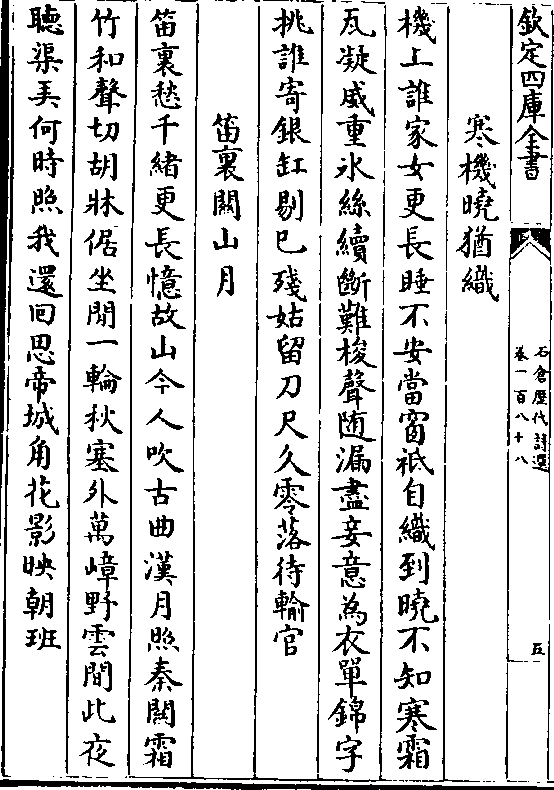 欽定四庫全書
石倉歷代詩選
卷一百八十八
五
寒機曉猶織
機上誰家女更長睡不安當窗祇自織到曉不知寒霜
瓦凝威重氷絲續斷難梭聲随漏盡妾意為衣單錦字
挑誰寄銀缸剔已殘姑留刀尺久零落待輸官
笛裏關山月
笛裏愁千緒更長憶故山今人吹古曲漢月照秦關霜
竹和聲切胡牀倨坐閒一輪秋塞外萬嶂野雲間此夜
聽渠弄何時照我還回思帝城角花影映朝班